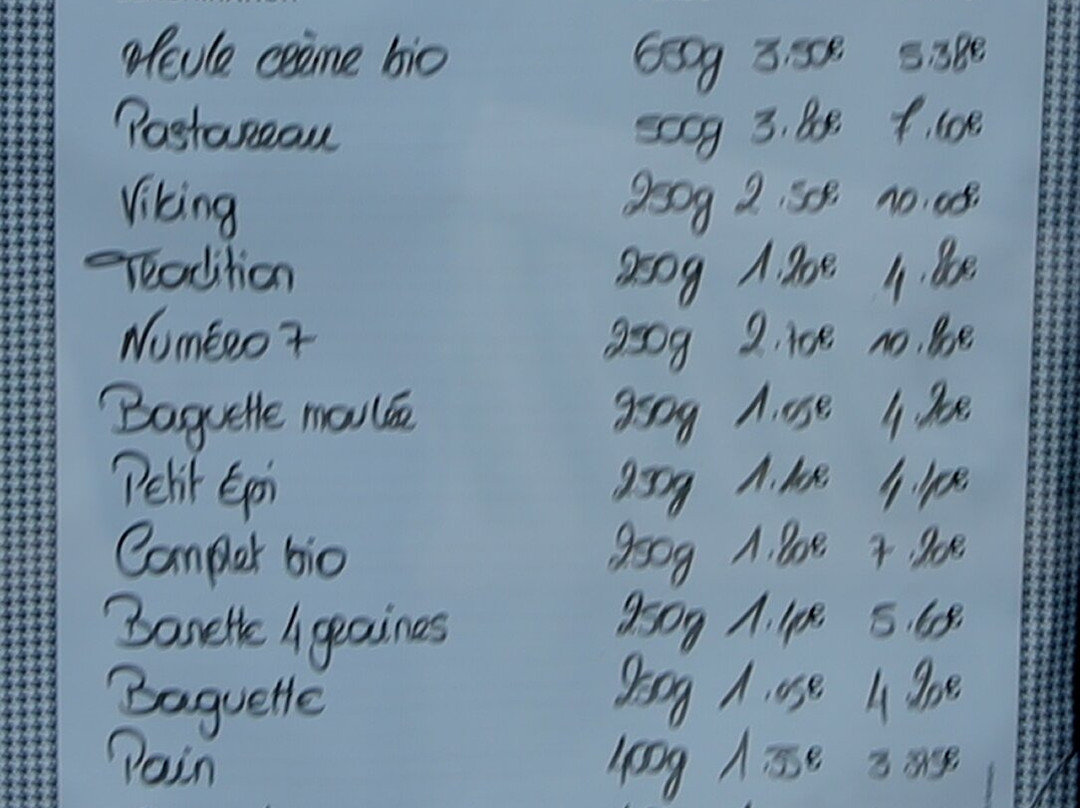 Meule crème bio 650g 3.50€ 5.38€
Pastareau 500g 3.80€ 7.60€
Viking 250g 2.50€ 10.00€
Tradition 250g 1.20€ 4.80€
Numéro 7 250g 2.70€ 10.80€
Baguette moulée 250g 1.05€ 4.20€
Petit Épi 250g 1.10€ 4.40€
Complet bio 250g 1.80€ 7.20€
Banette 4 graines 250g 1.40€ 5.60€
Baguette 250g 1.05€ 4.20€
Pain 400g 1.35€ 3.375€